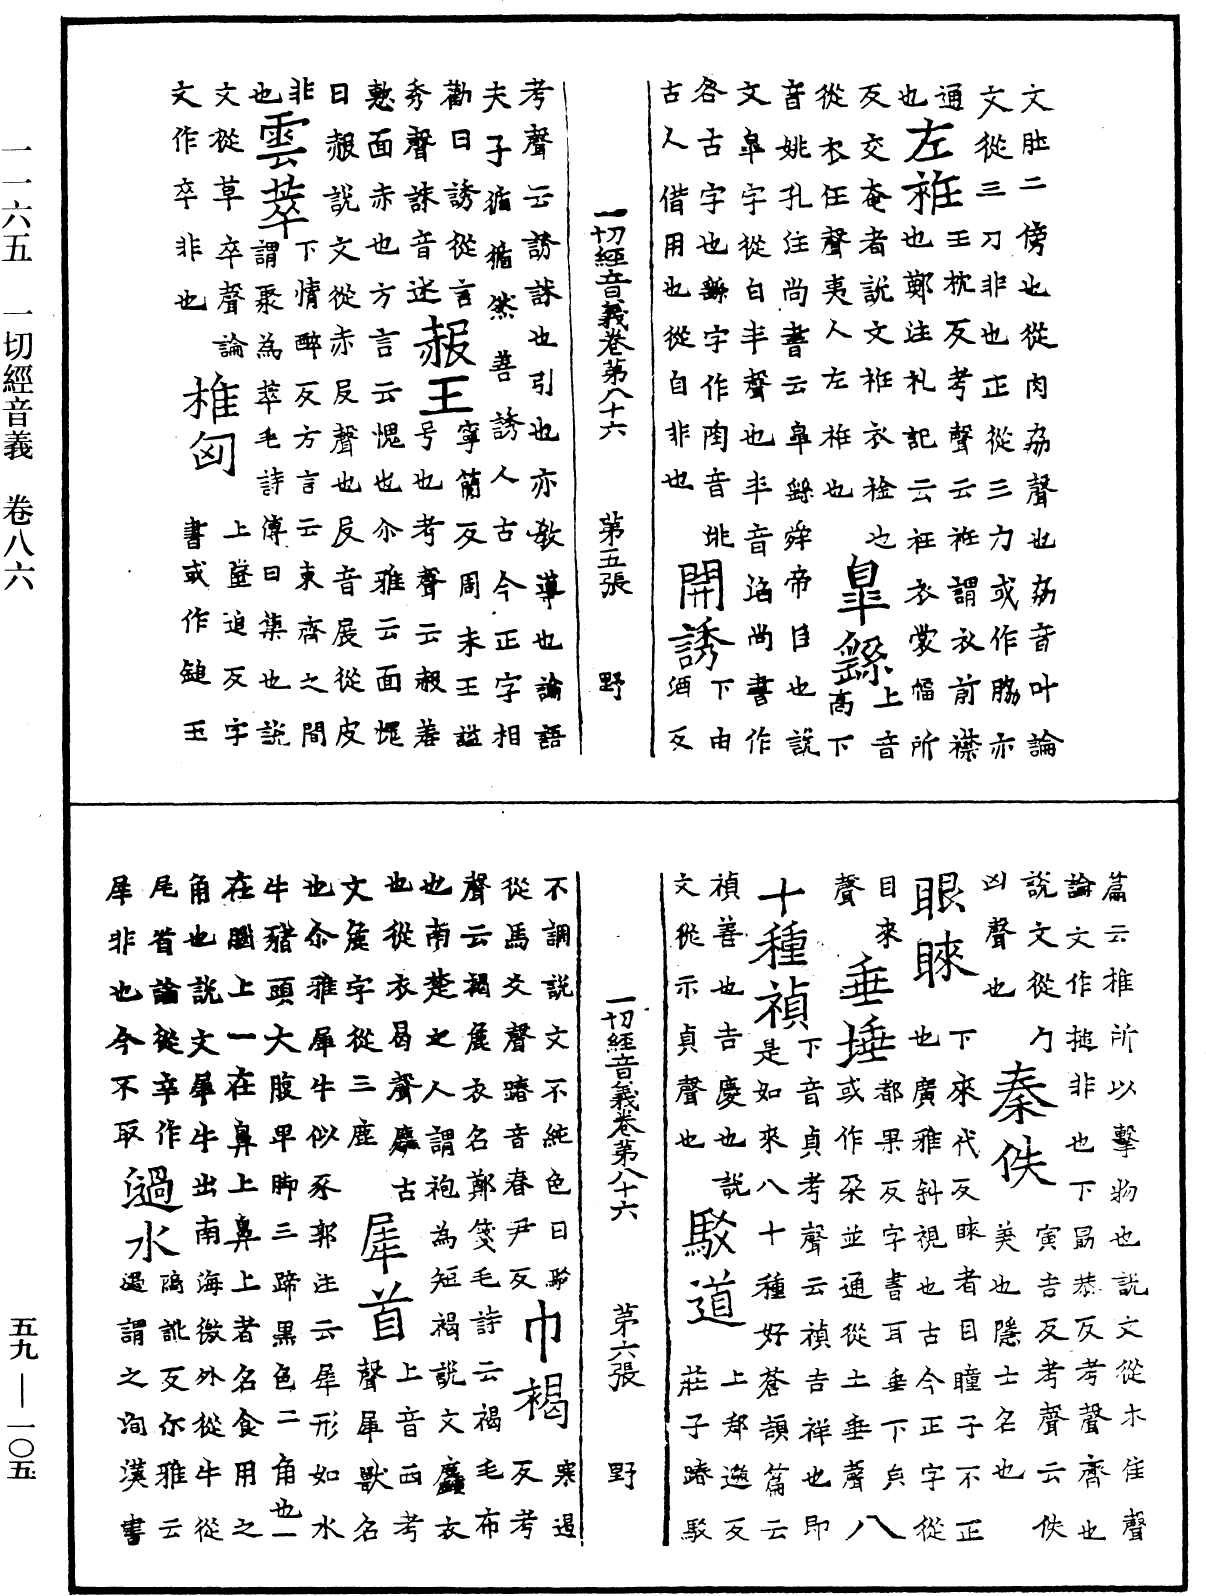 文肚二傍也從肉劦聲也劦音叶論
文從三刀非也正從三力或作脇亦
通也左衽王枕反考聲云衽謂衣前襟
也鄭注礼記云衽衣裳幅所
反交奄者說文衽衣襘也皐繇上音高下
從衣任聲夷人左衽也
音姚孔注尚書云皐繇舜帝臣也說
文皐字從白夲聲也夲音滔尚書作
咎古字也繇字作陶音姚開誘下由酒反
古人借用也從自非也
一切經音義卷第八十六　第五張　野
考聲云誘訹也引也亦教導也論語
夫子循循然善誘人古今正字相
勸曰誘從言秀聲訹音述赧王寧簡反周末王謚
号也考聲云赧羞
慙面赤也方言云愧也尒雅云面慢
曰赧說文從赤𠬝聲也𠬝音展從皮
非也雲萃下情醉反方言云東齊之間
謂聚為萃毛詩傳曰集也說
文從草卒聲論椎匈上墜追反字
文作卒非也書或作鎚玉
篇云椎所以擊物也說文從木隹聲
論文作搥非也下勗恭反考聲齊也
說文從勹凶聲也秦佚寅吉反考聲云佚
美也隱士名也
眼睞下來代反睞者目瞳子不正
也廣雅斜視也古今正字從
目來聲垂埵都果反字書耳垂下皃
或作朶並通從土垂聲八
十種禎下音貞考聲云禎吉祥也即
是如來八十種好蒼頡篇云
禎善也吉慶也說文從示貞聲也駁道上邦邈反
莊子踳駁
一切經音義卷第八十六　第六張　野
不調說文不純色曰駁
從馬爻聲踳音春尹反巾褐寒遏反考
聲云褐麁衣名鄭箋毛詩云褐毛布
也南楚之人謂袍為短褐說文麤衣
也從衣曷聲麤古文麁字從三鹿犀首上音西考聲犀獸名
也尒雅犀牛似豕郭注云犀形如水
牛豬頭大腹卑脚三蹄黑色二角也一
在𦠆上一在鼻上鼻上者名食用之
角也說文犀牛出南海徼外從牛從
尾首論從辛作犀非也今不取過水過䛿訛反尒雅云
過謂之洵漢書
一一六五　一切經音義　卷八六
五九—一〇五